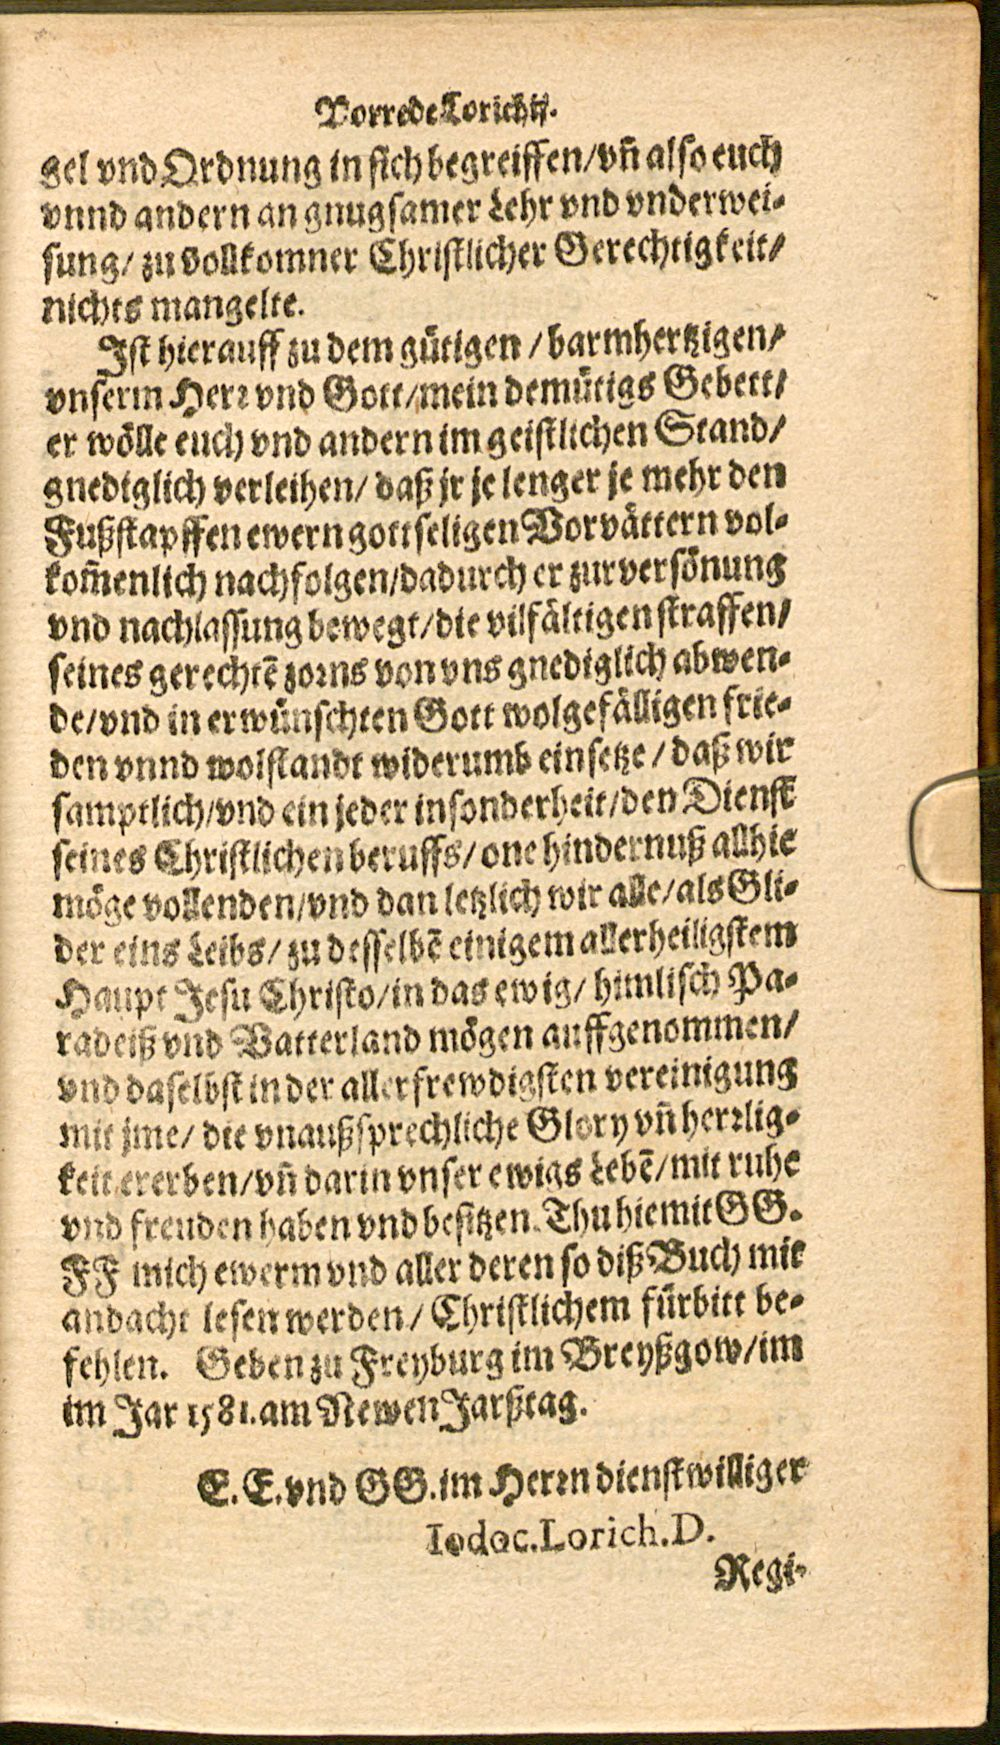 Vorrede Lorichij.
gel vnd Ordnung in sich begreiffen/vñ also euch
vnnd andern an gnugsamer Lehr vnd vnderwei-
sung/ zu vollkomner Christlicher Gerechtigkeit/
nichts mangelte.
Ist hierauff zu dem gütigen / barmhertzigen/
vnserm Herꝛ vnd Gott/mein demütigs Gebett/
er wölle euch vnd andern im geistlichen Stand/
gnediglich verleihen/ daß jr je lenger je mehr den
Fußstapffen ewern gottseligen Vorvättern vol-
kom̃enlich nachfolgen/dadurch er zur versönung
vnd nachlassung bewegt/die vilfältigen straffen/
seines gerechtē zoꝛns von vns gnediglich abwen-
de/vnd in erwünschten Gott wolgefälligen frie-
den vnnd wolstandt widerumb einsetze / daß wir
samptlich/vnd ein jeder insonderheit/den Dienst
seines Christlichen beruffs/ one hindernuß allhie
möge vollenden/vnd dan letzlich wir alle/als Gli-
der eins Leibs/ zu desselbē einigem allerheiligstem
Haupt Jesu Christo/in das ewig/ himlisch Pa-
radeiß vnd Vatterland mögen auffgenommen/
vnd daselbst in der allerfrewdigsten vereinigung
mit jme/ die vnaußsprechliche Glory vñ herꝛlig-
keit ererben/vñ darin vnser ewigs Lebē/mit ruhe
vnd freuden haben vnd besitzen. Thu hiemit GG.
FF mich ewerm vnd aller deren so diß Buch mit
andacht lesen werden / Christlichem fürbitt be-
fehlen. Geben zu Freyburg im Breyßgow/im
im Jar 1581. am Newen Jarßtag.
E. E. vnd GG. im Herꝛn dienstwilliger
Iodoc. Lorich. D.
Regi-